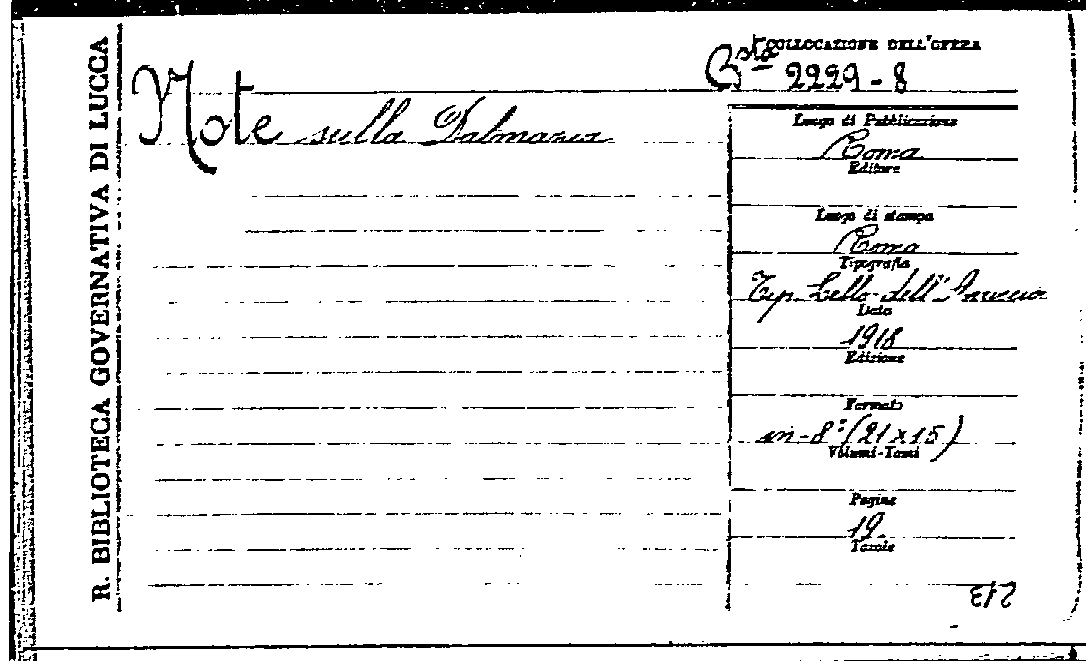 R. BIBLIOTECA GOVERNATIVA DI LUCCA
COLLOCAZIONE DELL'OPERA
Bsta 2229-8
Note sulla Dalmazia
Luogo di Pubblicazione
Roma
Editore
Luogo di stampa
Roma
Tipografia
Tip. dell'
Data
1918
Edizione
Formato
in-8° (21x15)
Volumi-Tomi
Pagine
19.
Tavole
213